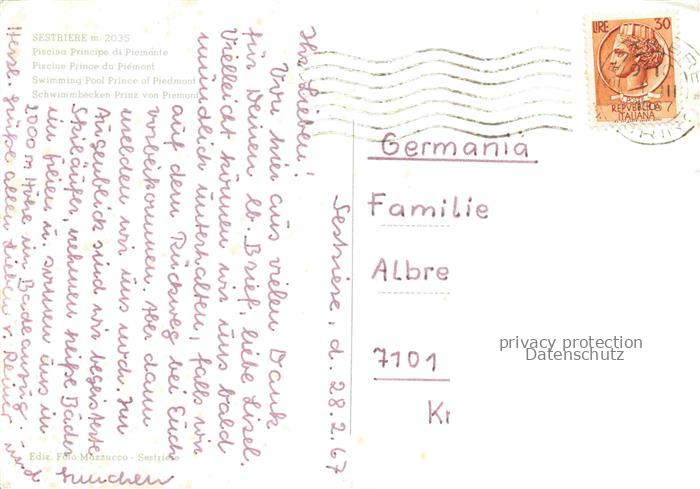 SESTRIERE m. 2035
Piscina Principe di Piemonte
Piscine Prince du Piémont
Swimming Pool Prince of Piedmont
Schwimmbecken Prinz von Piemont
Ediz. Foto Mazzucco - Sestriere
Sestriere, d. 28.2.67
Ihr Lieben!
Von hier aus vielen Dank
für Deinen lb. Brief, liebe Lisel.
Vielleicht können wir uns bald
mündlich unterhalten, falls wir
auf dem Rückweg bei Euch
vorbeikommen. Aber dann
melden wir uns noch. Im
Augenblick sind wir begeisterte
Skiläufer, nehmen heiße Bäder
im freien u. sonnen uns in
2000 m Höhe im Badeanzug.
Herzl. Grüße allen Lieben v. Reiner und
LIRE 30
REPVBBLICA
ITALIANA
Germania
Familie
Albre
7101
Kr
privacy protection
Datenschutz